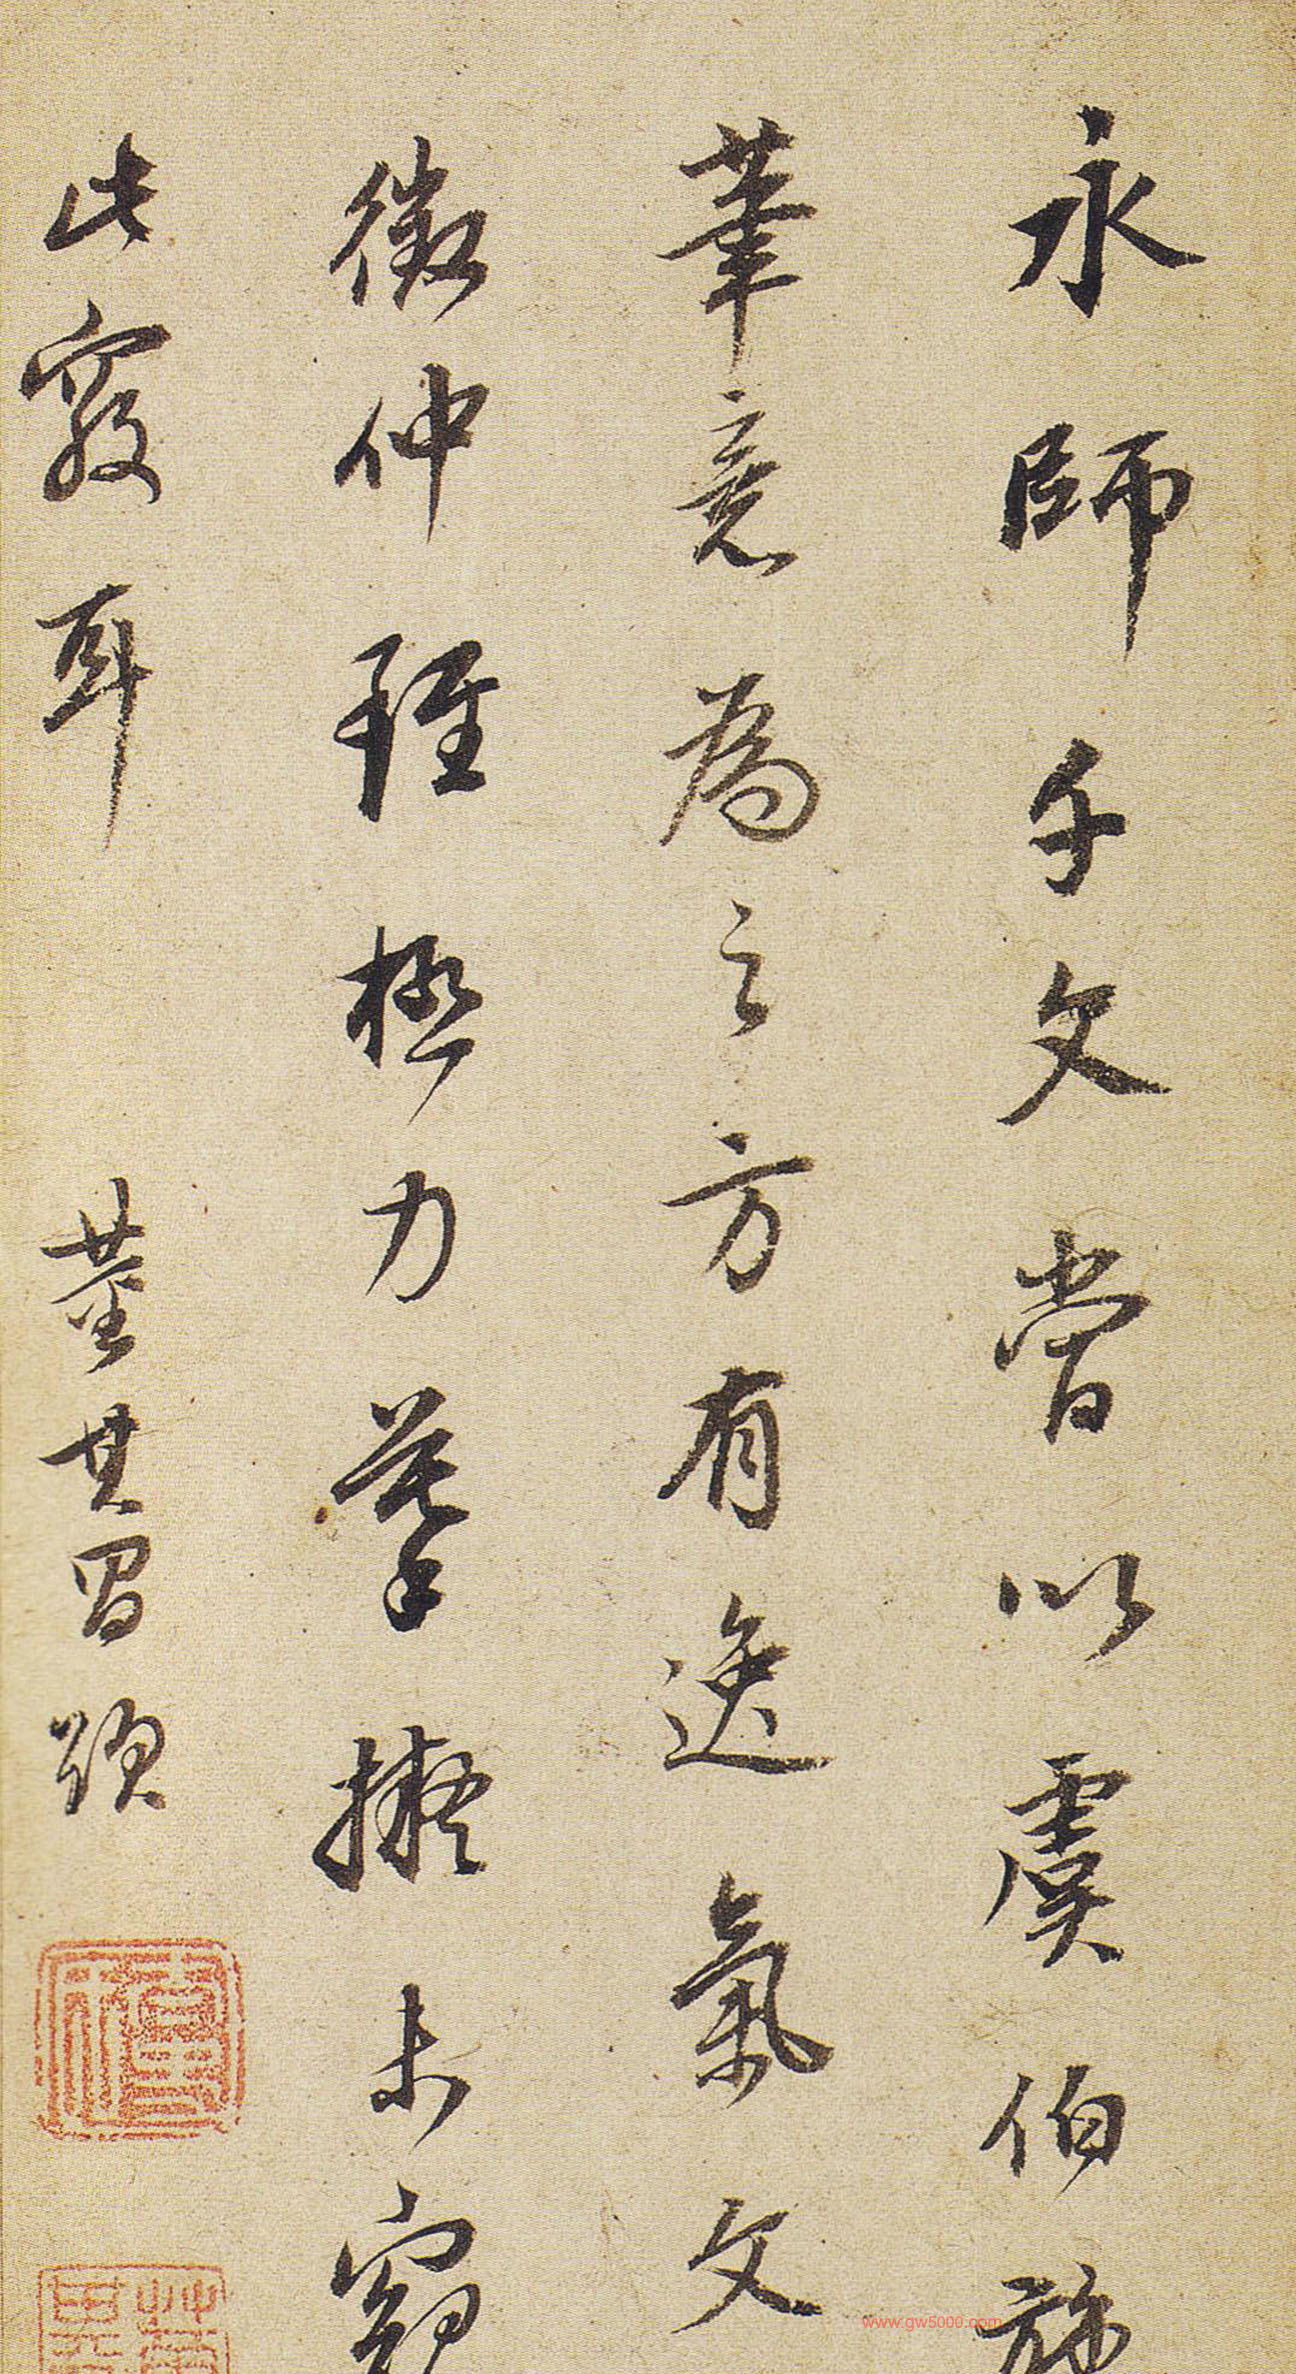 永師千文嘗以虞伯施
筆意為之方有逸氣文
徵仲雖極力摹擬未窺
此竅耳 董其昌題
www.gw5000.com